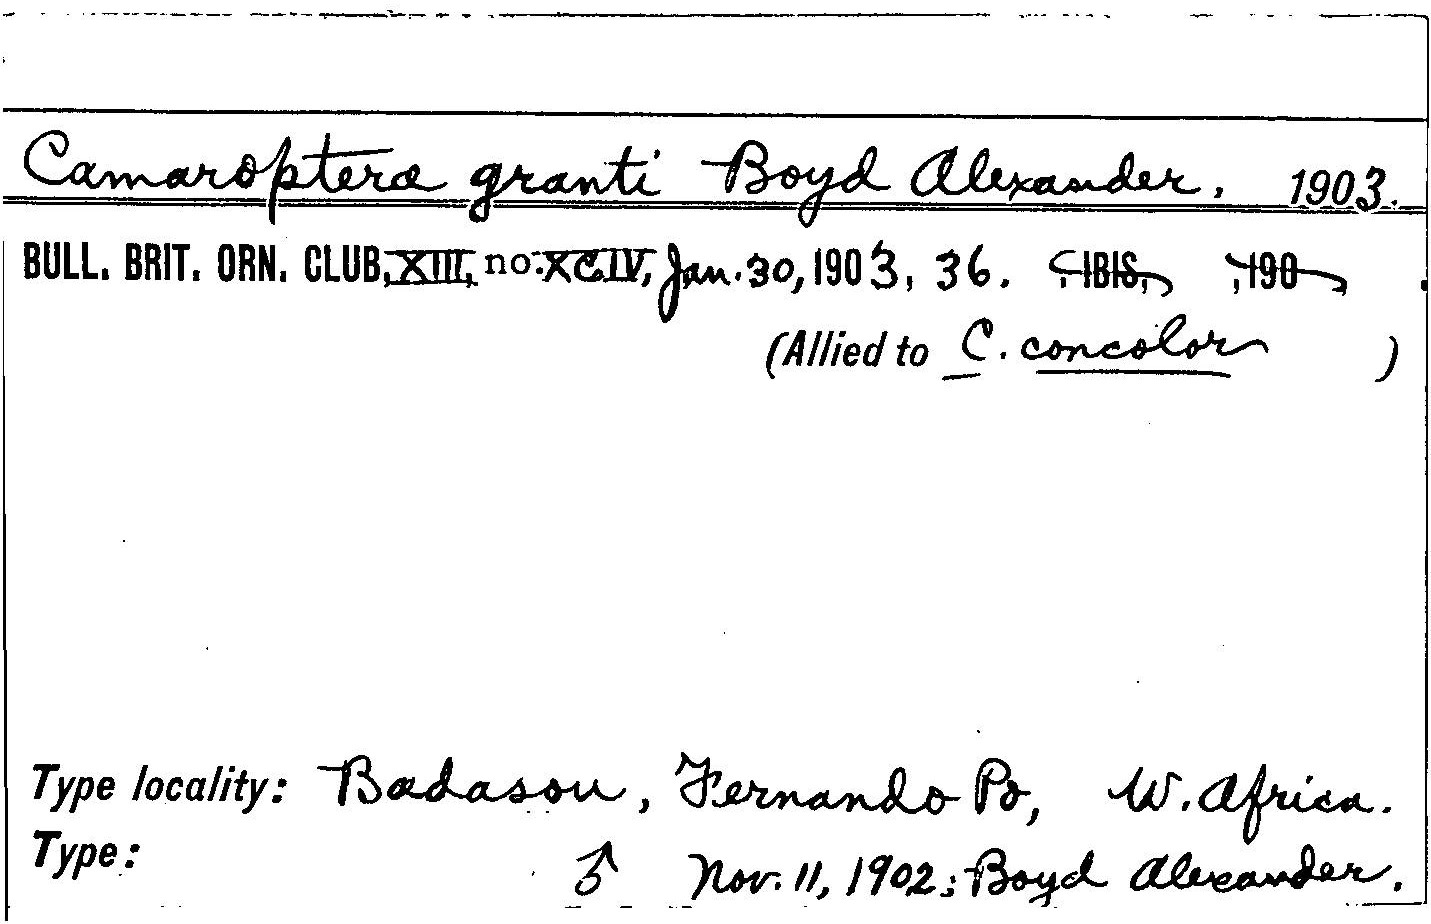 Camaroptera granti Boyd Alexander. 1903.
BULL. BRIT. ORN. CLUB, XIII, no. XCIV, Jan. 30, 1903, 36. IBIS, , 190
(Allied to C. concolor )
Type locality: Badasou, Fernando Po, W. Africa.
Type: ♂ Nov. 11, 1902; Boyd Alexander.